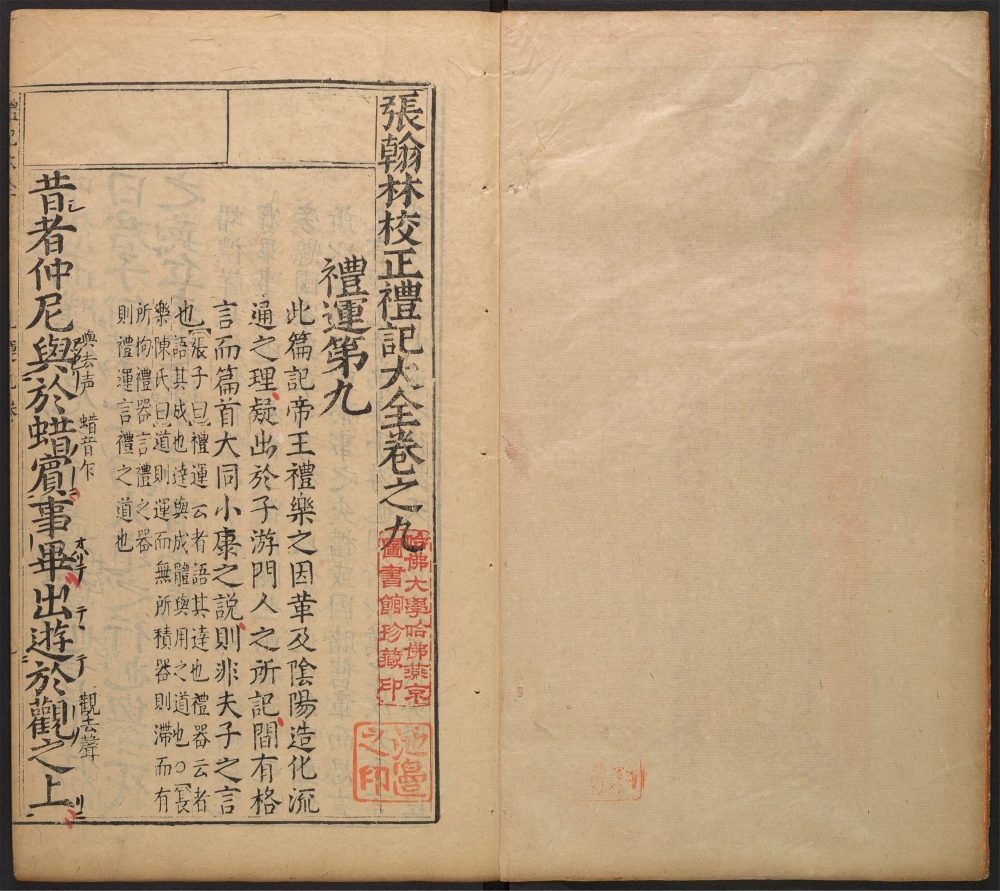 張翰林校正禮記大全卷之九
禮運第九
此篇記帝王禮樂之因革及陰陽造化流
通之理疑出於子游門人之所記間有格
言而篇首大同小康之説則非夫子之言
也張子曰禮運云者語其達也禮器云者
語其成也達與成體與用之道也○長
樂陳氏曰道則運而無所積器則滯而有
所拘禮器言禮之器
則禮運言禮之道也
昔者仲尼與於蜡賓事畢出遊於觀之上
與去声
蜡音乍
觀去聲
哈佛大學哈佛燕京
圖書館珍藏印
之印